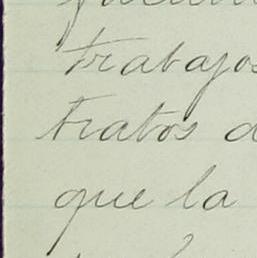 trabajos
tratos d
que la